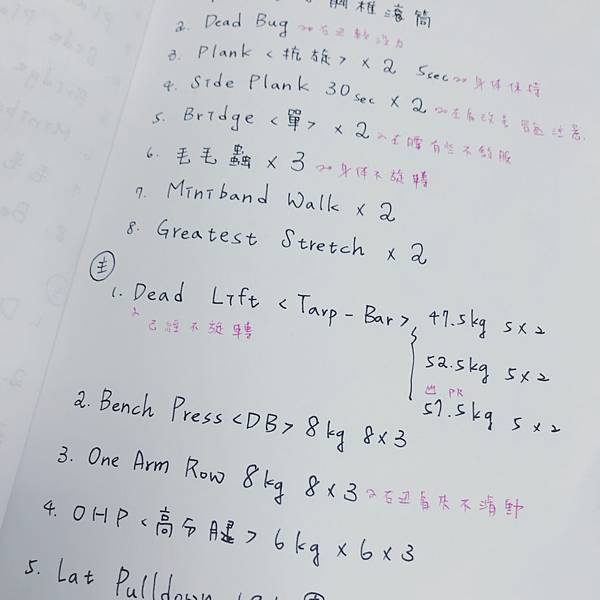 胸椎滾筒
2. Dead Bug
3. Plank <抗旋> x 2 5sec 身体保持
4. Side Plank 30sec x 2
5. Bridge <單> x 2
6. 毛毛蟲 x 3 身体不旋轉
7. Miniband Walk x 2
8. Greatest Stretch x 2
主
1. Dead Lift <Tarp-Bar> 47.5kg 5x2
已經不旋轉
52.5kg 5x2
PR
57.5kg 5x2
2. Bench Press <DB> 8kg 8x3
3. One Arm Row 8kg 8x3
4. OHP <高分腿> 6kg x 6 x 3
5. Lat Pulldown